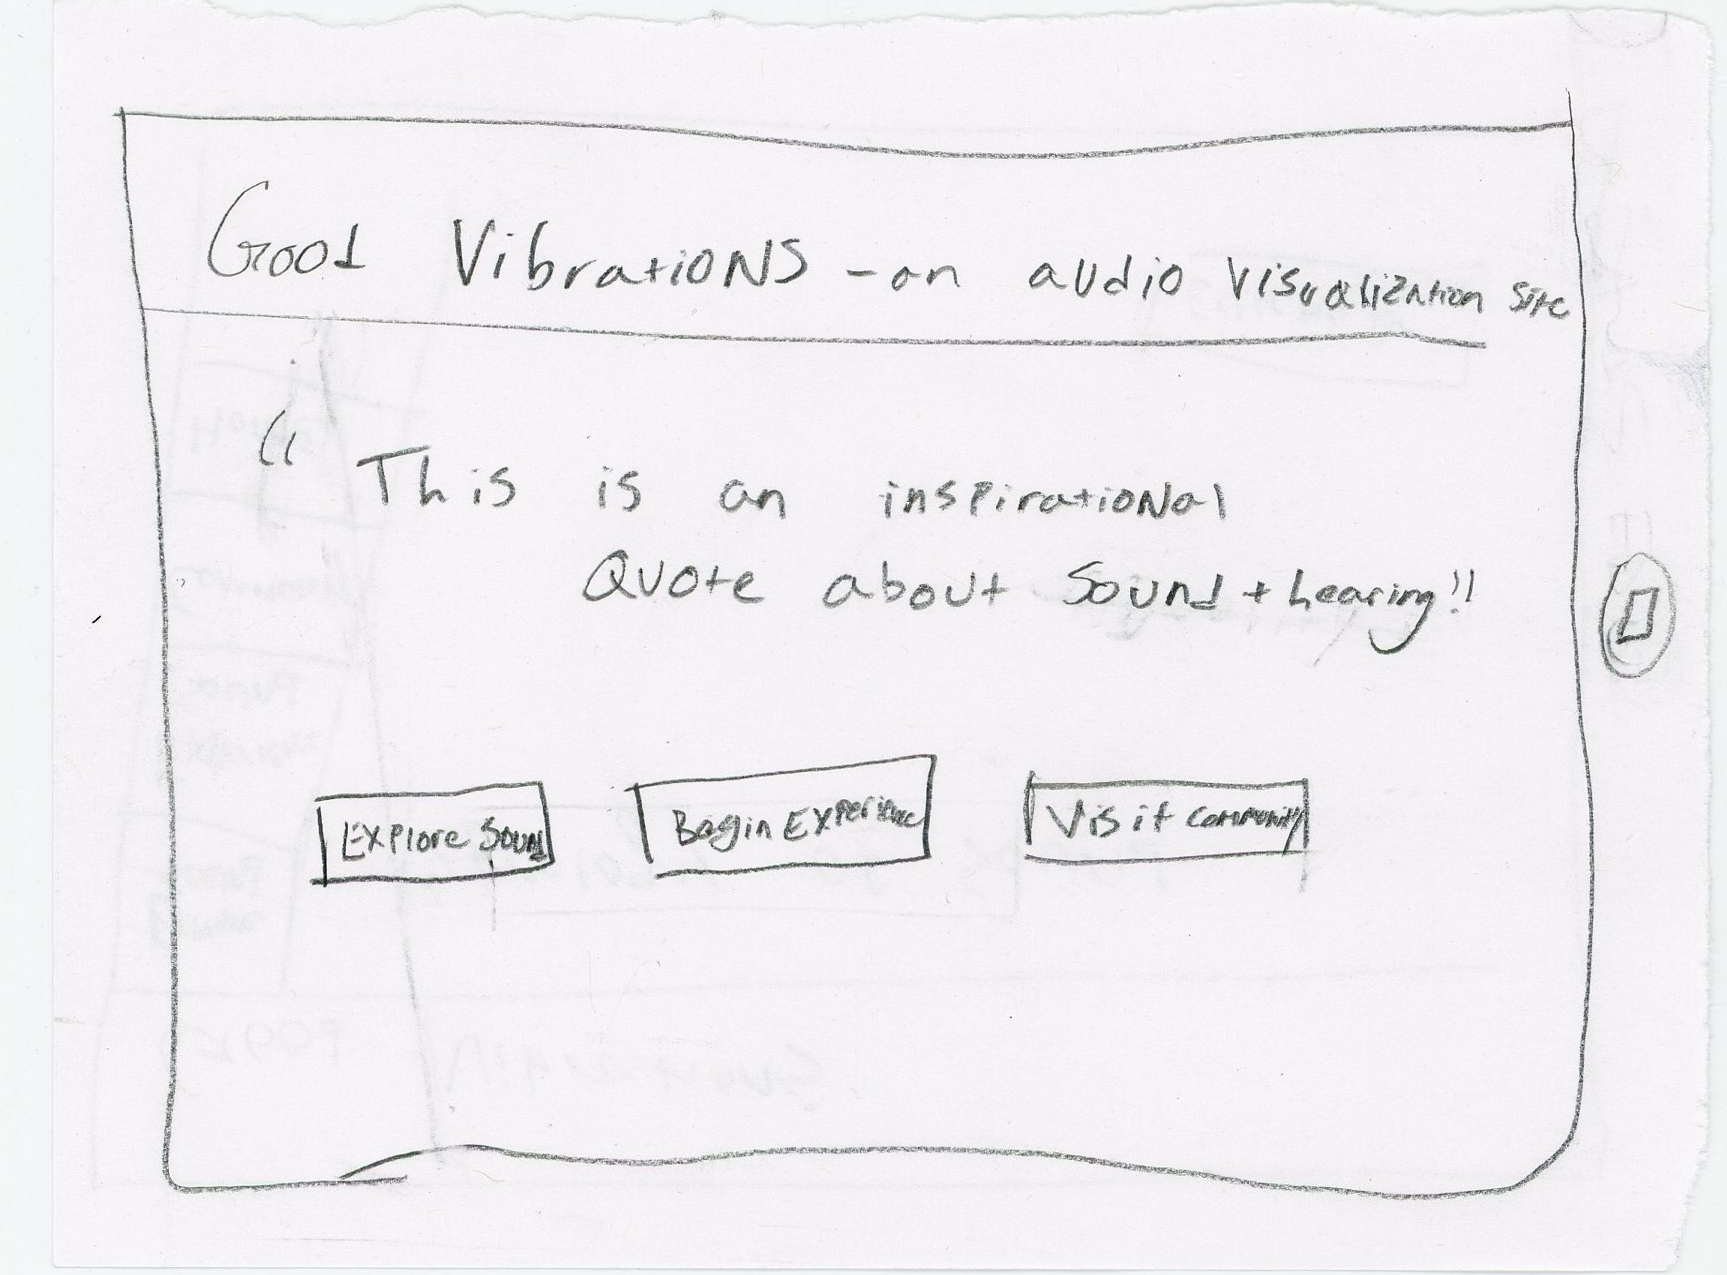 Good Vibrations - an audio visualization site
" This is an inspirational
Quote about Sound + hearing!!
Explore Sound
Begin Experience
Visit community